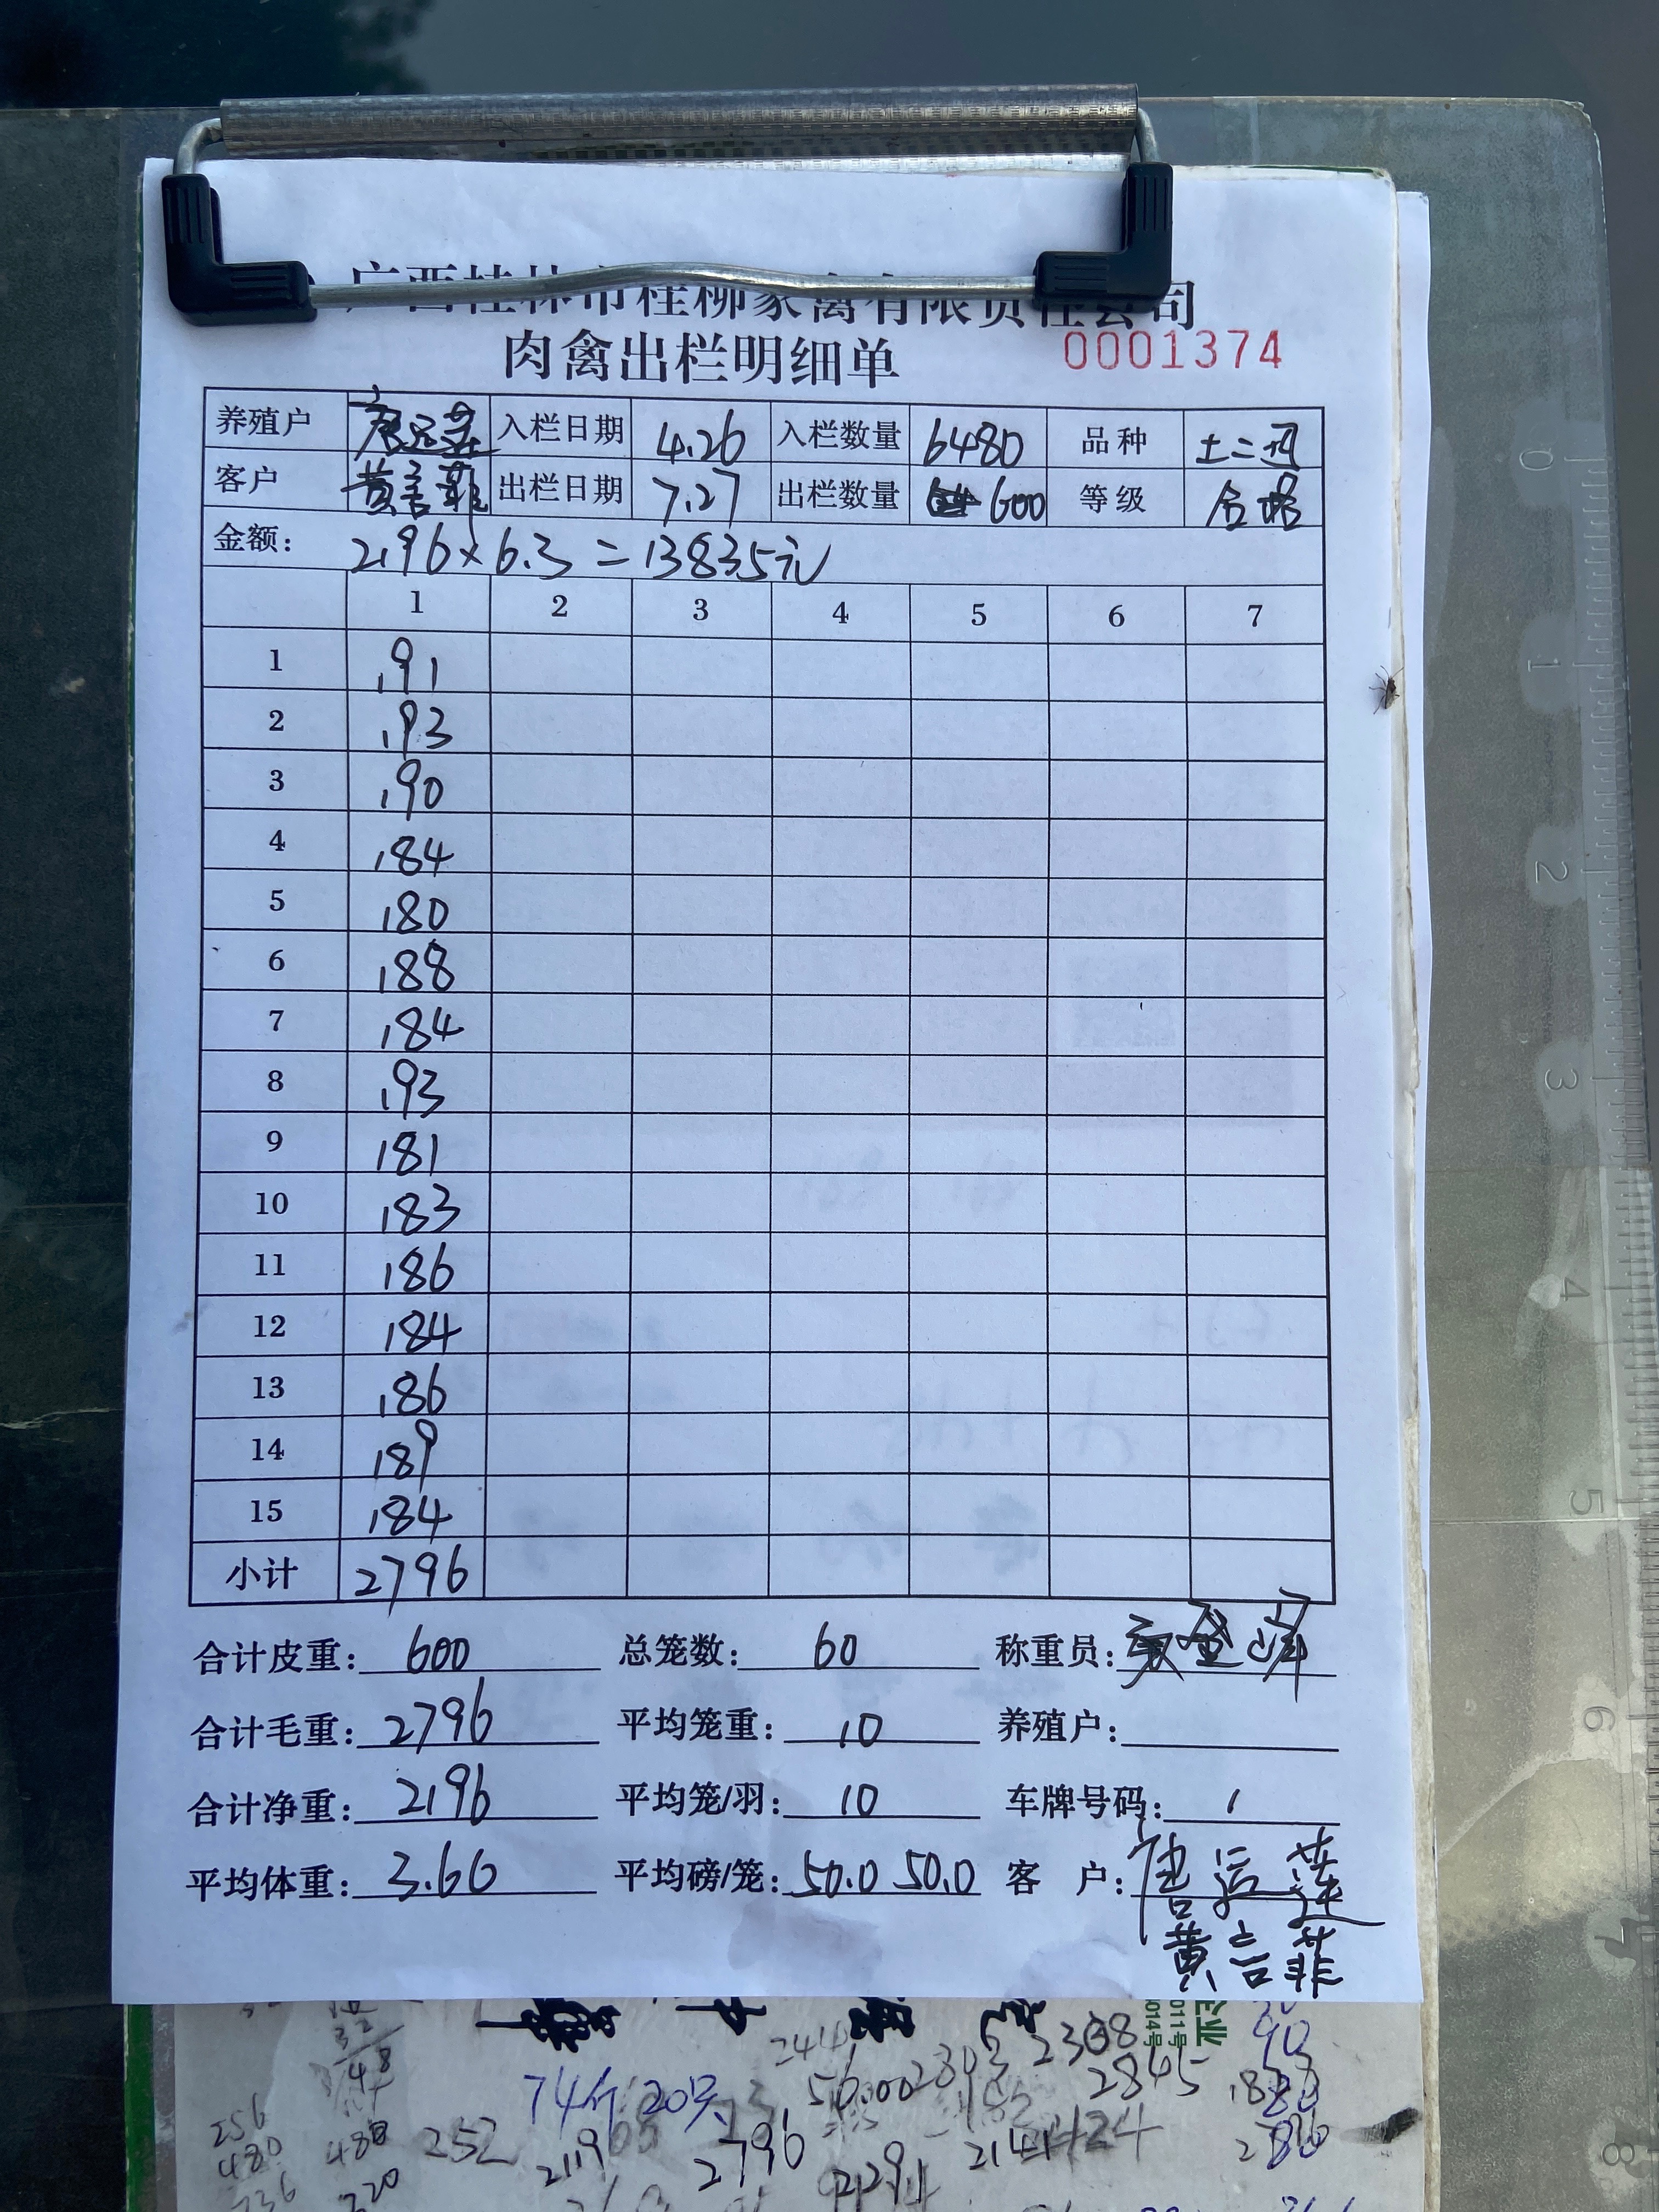 广西桂林市桂柳家禽有限责任公司
肉禽出栏明细单 0001374
养殖户 入栏日期 4.26 入栏数量 6480 品种 土二
客户 黄言菲 出栏日期 7.27 出栏数量 600 等级 合格
金额: 2196×6.3=13835元
1 2 3 4 5 6 7
1 191
2 193
3 190
4 184
5 180
6 188
7 184
8 193
9 181
10 183
11 186
12 184
13 186
14 189
15 184
小计 2796
合计皮重: 600 总笼数: 60 称重员:
合计毛重: 2796 平均笼重: 10 养殖户:
合计净重: 2196 平均笼/羽: 10 车牌号码: /
平均体重: 3.66 平均磅/笼: 50.0 50.0 客 户: 唐运莲
黄言菲
企业
74斤 20只
2845
252
2796
2291
256
480
488
320
0 1 2 3 4 5 6 7 8